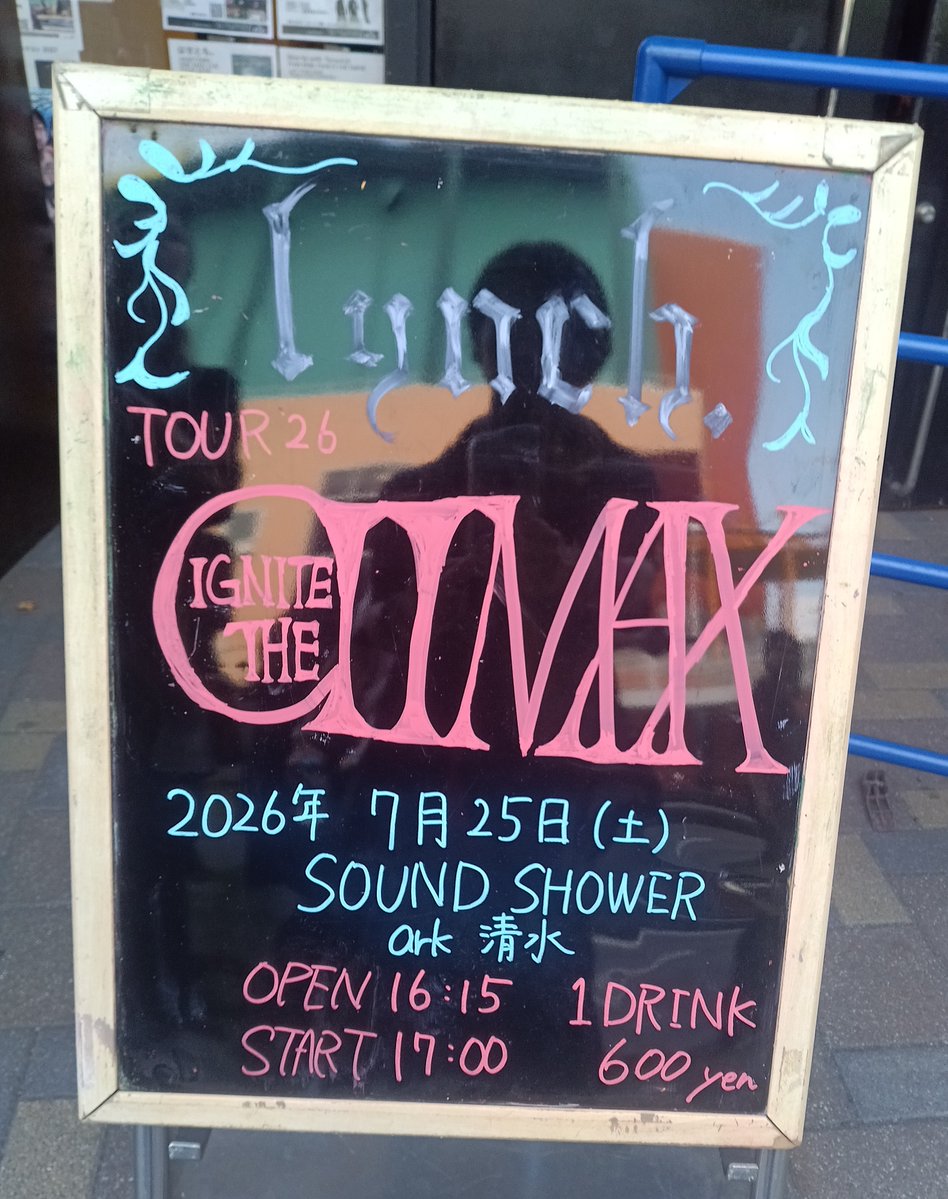 lynch.
TOUR 26
IGNITE
THE
CLIMAX
2026年 7月25日(土)
SOUND SHOWER
ark 清水
OPEN 16:15
START 17:00
1 DRINK
600 yen